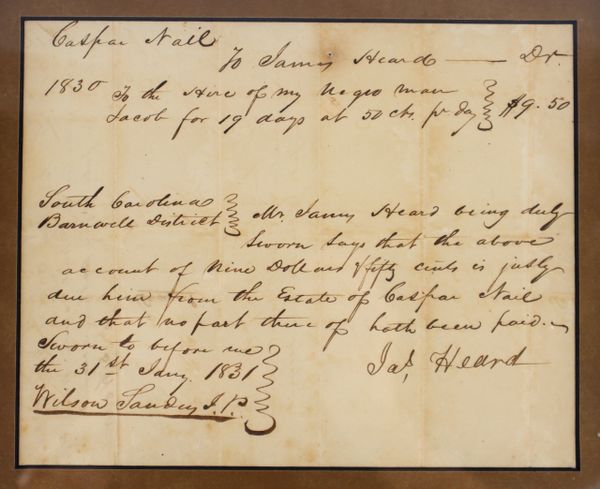 Caspar Nail
To James Heard — Dr.
1830 To the Hire of my Negro man
Jacob for 19 days at 50 cts. pr day $9.50
South Carolina
Barnwell District
Mr. James Heard being duly
sworn says that the above
account of Nine Dollars & fifty cents is justly
due him from the Estate of Caspar Nail
and that no part there of hath been paid.
Sworn to before me
the 31st Jany. 1831
Jas, Heard
Wilson Sanders J. P.